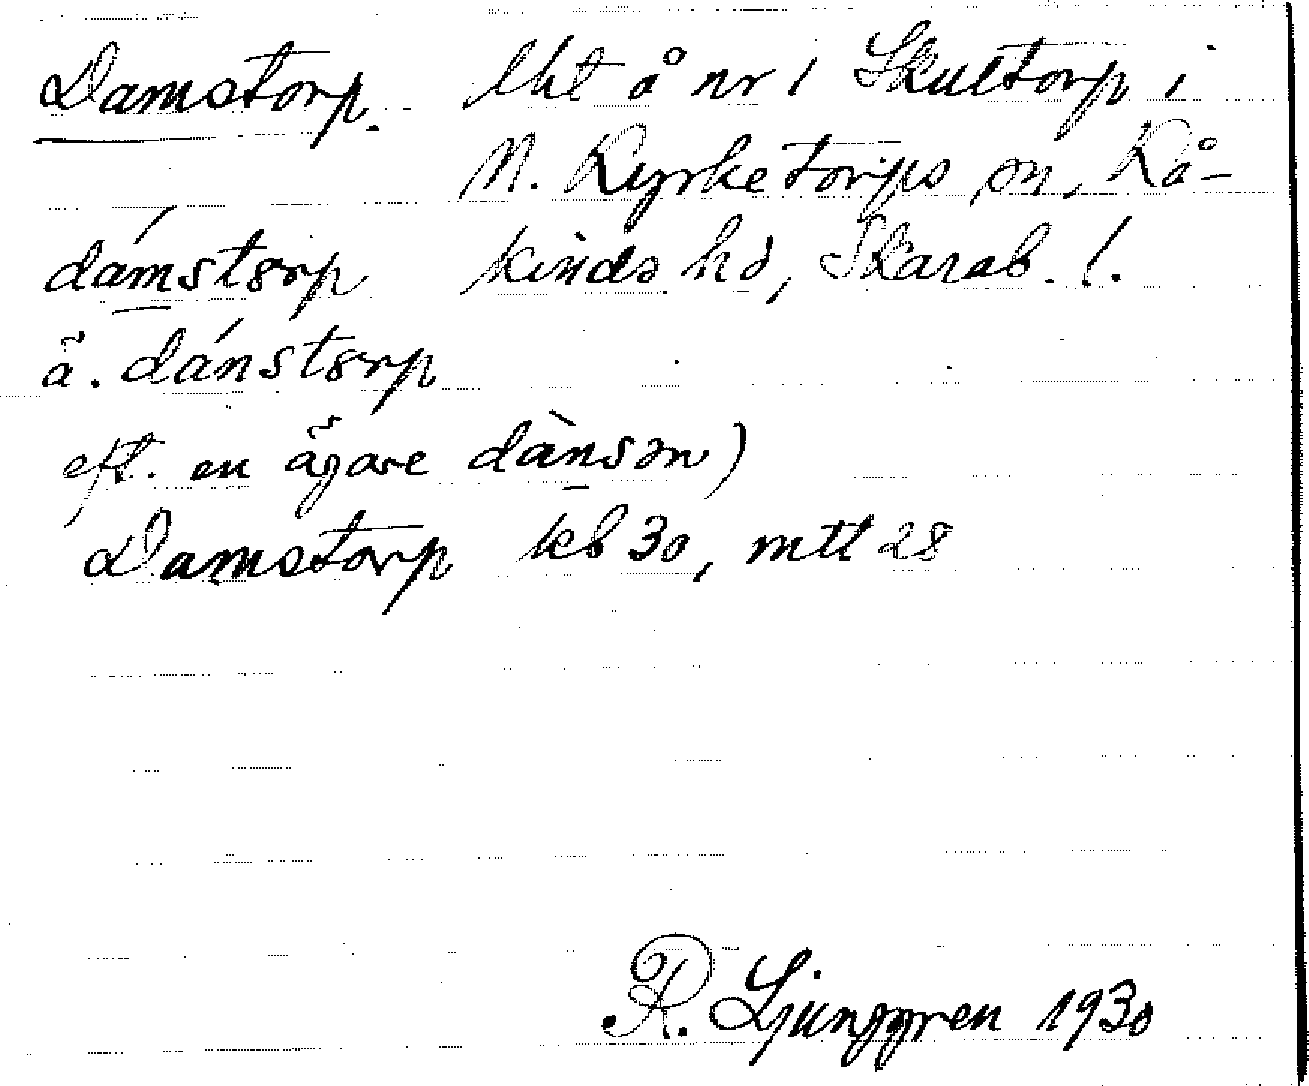 Damstorp. lht å nr 1 Skultorp i
N. Kyrketorps sn, Kå-
dámstorp kinds hd, Skarab. l.
ä. dánstorp
eft. en ägare dànsən)
Damstorp kb 30, mtl 28
R. Ljunggren 1930